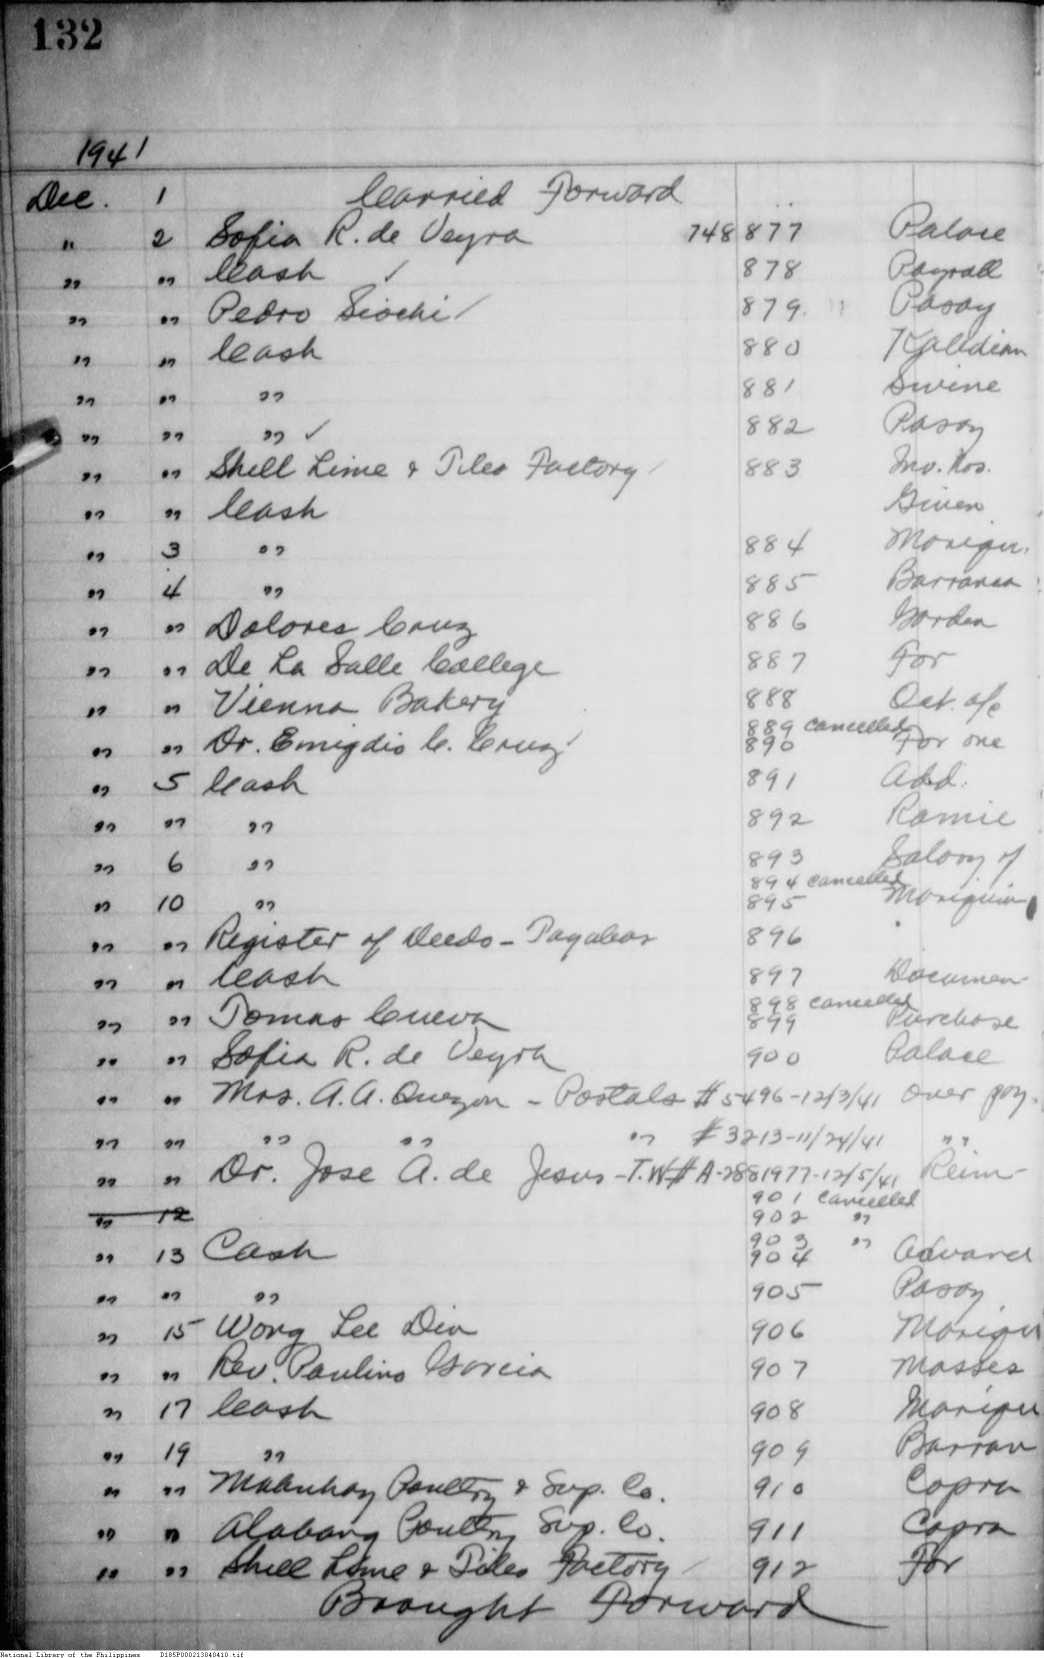 132
1941
Dec. 1 Carried Forward
" 2 Sofia R. de Veyra 748877 Palace
" " Cash ✓ 878 Payroll
" " Pedro Siochi 879 Pasay
" " Cash 880
" " " 881 Swine
" " " ✓ 882 Pasay
" " Shell Lime & Tiles Factory 883 Inv. Nos.
" " Cash Given
" 3 " 884 Mariqu.
" 4 " 885 Barranca
" " Dolores Cruz 886 Garden
" " De La Salle College 887 For
" " Vienna Bakery 888 Oct. a/c
889 cancelled
" " Dr. Emigdio C. Cruz 890 For one
" 5 Cash 891 Add.
" " " 892 Ramie
" 6 " 893 Salary of
894 cancelled
" 10 " 895 Mariquina
" " Register of Deeds - Tayabas 896
" " Cash 897 Documen
898 cancelled
" " Tomas Cueva 899 Purchase
" " Sofia R. de Veyra 900 Palace
" " Mrs. A. A. Quezon - Postals # 5496-12/3/41 over pay.
" " " " " # 3213-11/24/41 " "
" " Dr. Jose A. de Jesus - T.W# A-2881977-12/5/41 Reim-
901 cancelled
" 12 902 "
903 "
" 13 Cash 904 Advance
" " " 905 Pasay
" 15 Wong Lee Din 906 Mariqui
" " Rev. Paulino Garcia 907 Masses
" 17 Cash 908 Mariqui
" 19 " 909 Barran
" " Malinhay Poultry & Sup. Co. 910 Copra
" " Alabang Poultry Sup. Co. 911 Copra
" " Shell Lime & Tiles Factory 912 For
Brought Forward
National Library of the Philippines D185P000213040410.tif